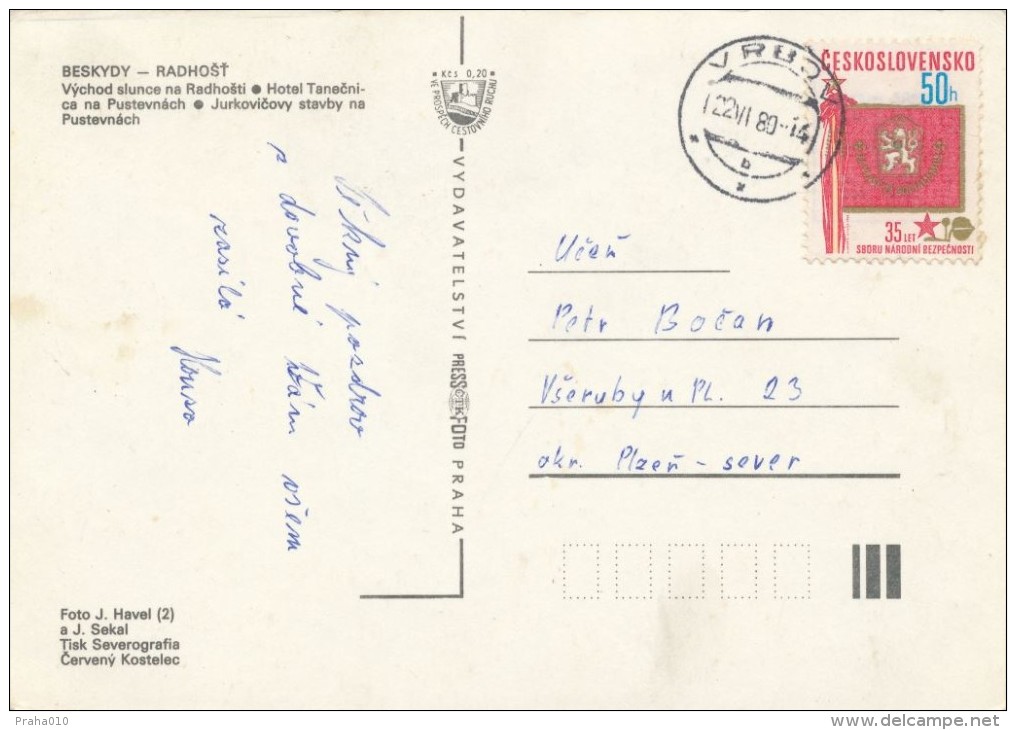 BESKYDY — RADHOŠŤ
Východ slunce na Radhošti ● Hotel Tanečni-
ca na Pustevnách ● Jurkovičovy stavby na
Pustevnách
Kčs 0,20
VE PROSPĚCH CESTOVNÍHO RUCHU
Pěkný pozdrav
z dovolené Vám všem
zasílá
VYDAVATELSTVÍ PRESSFOTO PRAHA
ČTK
VRBOV
22 VI 80-14
b
ČESKOSLOVENSKO
50h
35 LET
SBORU NÁRODNÍ BEZPEČNOSTI
Učeň
Petr Bočan
Všeruby u Pl. 23
okr. Plzeň - sever
Foto J. Havel (2)
a J. Sekal
Tisk Severografia
Červený Kostelec
Praha010
delcampe.net